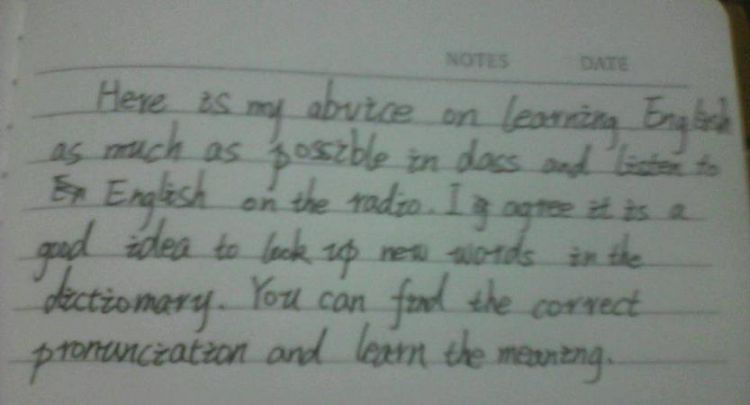 NOTES DATE
Here is my abvice on learning English
as much as possible in dass and listen to
En English on the radio. I g agree it is a
good idea to look up new words in the
dictiomary. You can find the correct
pronunciation and learn the meaning.